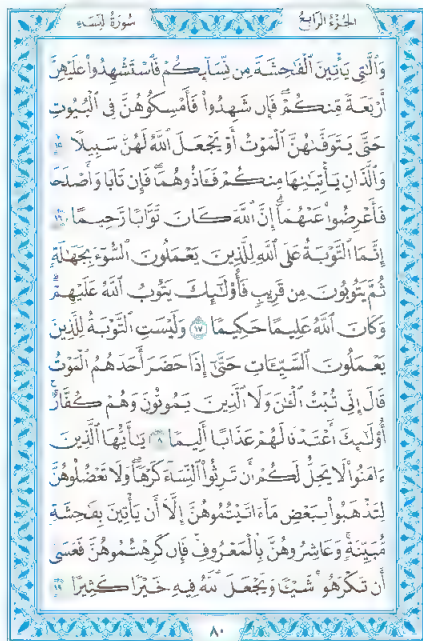 سُورَةُ النِّسَاءِ
الجُزْءُ الرَّابِعُ
وَٱلَّٰتِي يَأْتِينَ ٱلْفَٰحِشَةَ مِن نِّسَآئِكُمْ فَٱسْتَشْهِدُوا۟ عَلَيْهِنَّ
أَرْبَعَةً مِّنكُمْ ۖ فَإِن شَهِدُوا۟ فَأَمْسِكُوهُنَّ فِى ٱلْبُيُوتِ
حَتَّىٰ يَتَوَفَّىٰهُنَّ ٱلْمَوْتُ أَوْ يَجْعَلَ ٱللَّهُ لَهُنَّ سَبِيلًا ١٥
وَٱلَّذَانِ يَأْتِيَٰنِهَا مِنكُمْ فَـَٔاذُوهُمَا ۖ فَإِن تَابَا وَأَصْلَحَا
فَأَعْرِضُوا۟ عَنْهُمَآ ۗ إِنَّ ٱللَّهَ كَانَ تَوَّابًا رَّحِيمًا ١٦
إِنَّمَا ٱلتَّوْبَةُ عَلَى ٱللَّهِ لِلَّذِينَ يَعْمَلُونَ ٱلسُّوٓءَ بِجَهَٰلَةٍ
ثُمَّ يَتُوبُونَ مِن قَرِيبٍ فَأُو۟لَٰٓئِكَ يَتُوبُ ٱللَّهُ عَلَيْهِمْ ۗ
وَكَانَ ٱللَّهُ عَلِيمًا حَكِيمًا ١٧ وَلَيْسَتِ ٱلتَّوْبَةُ لِلَّذِينَ
يَعْمَلُونَ ٱلسَّيِّـَٔاتِ حَتَّىٰٓ إِذَا حَضَرَ أَحَدَهُمُ ٱلْمَوْتُ
قَالَ إِنِّى تُبْتُ ٱلْـَٰٔنَ وَلَا ٱلَّذِينَ يَمُوتُونَ وَهُمْ كُفَّارٌ ۚ
أُو۟لَٰٓئِكَ أَعْتَدْنَا لَهُمْ عَذَابًا أَلِيمًا ١٨ يَٰٓأَيُّهَا ٱلَّذِينَ
ءَامَنُوا۟ لَا يَحِلُّ لَكُمْ أَن تَرِثُوا۟ ٱلنِّسَآءَ كَرْهًا ۖ وَلَا تَعْضُلُوهُنَّ
لِتَذْهَبُوا۟ بِبَعْضِ مَآ ءَاتَيْتُمُوهُنَّ إِلَّآ أَن يَأْتِينَ بِفَٰحِشَةٍ
مُّبَيِّنَةٍ ۚ وَعَاشِرُوهُنَّ بِٱلْمَعْرُوفِ ۚ فَإِن كَرِهْتُمُوهُنَّ فَعَسَىٰٓ
أَن تَكْرَهُوا۟ شَيْـًٔا وَيَجْعَلَ ٱللَّهُ فِيهِ خَيْرًا كَثِيرًا ١٩
٨٠